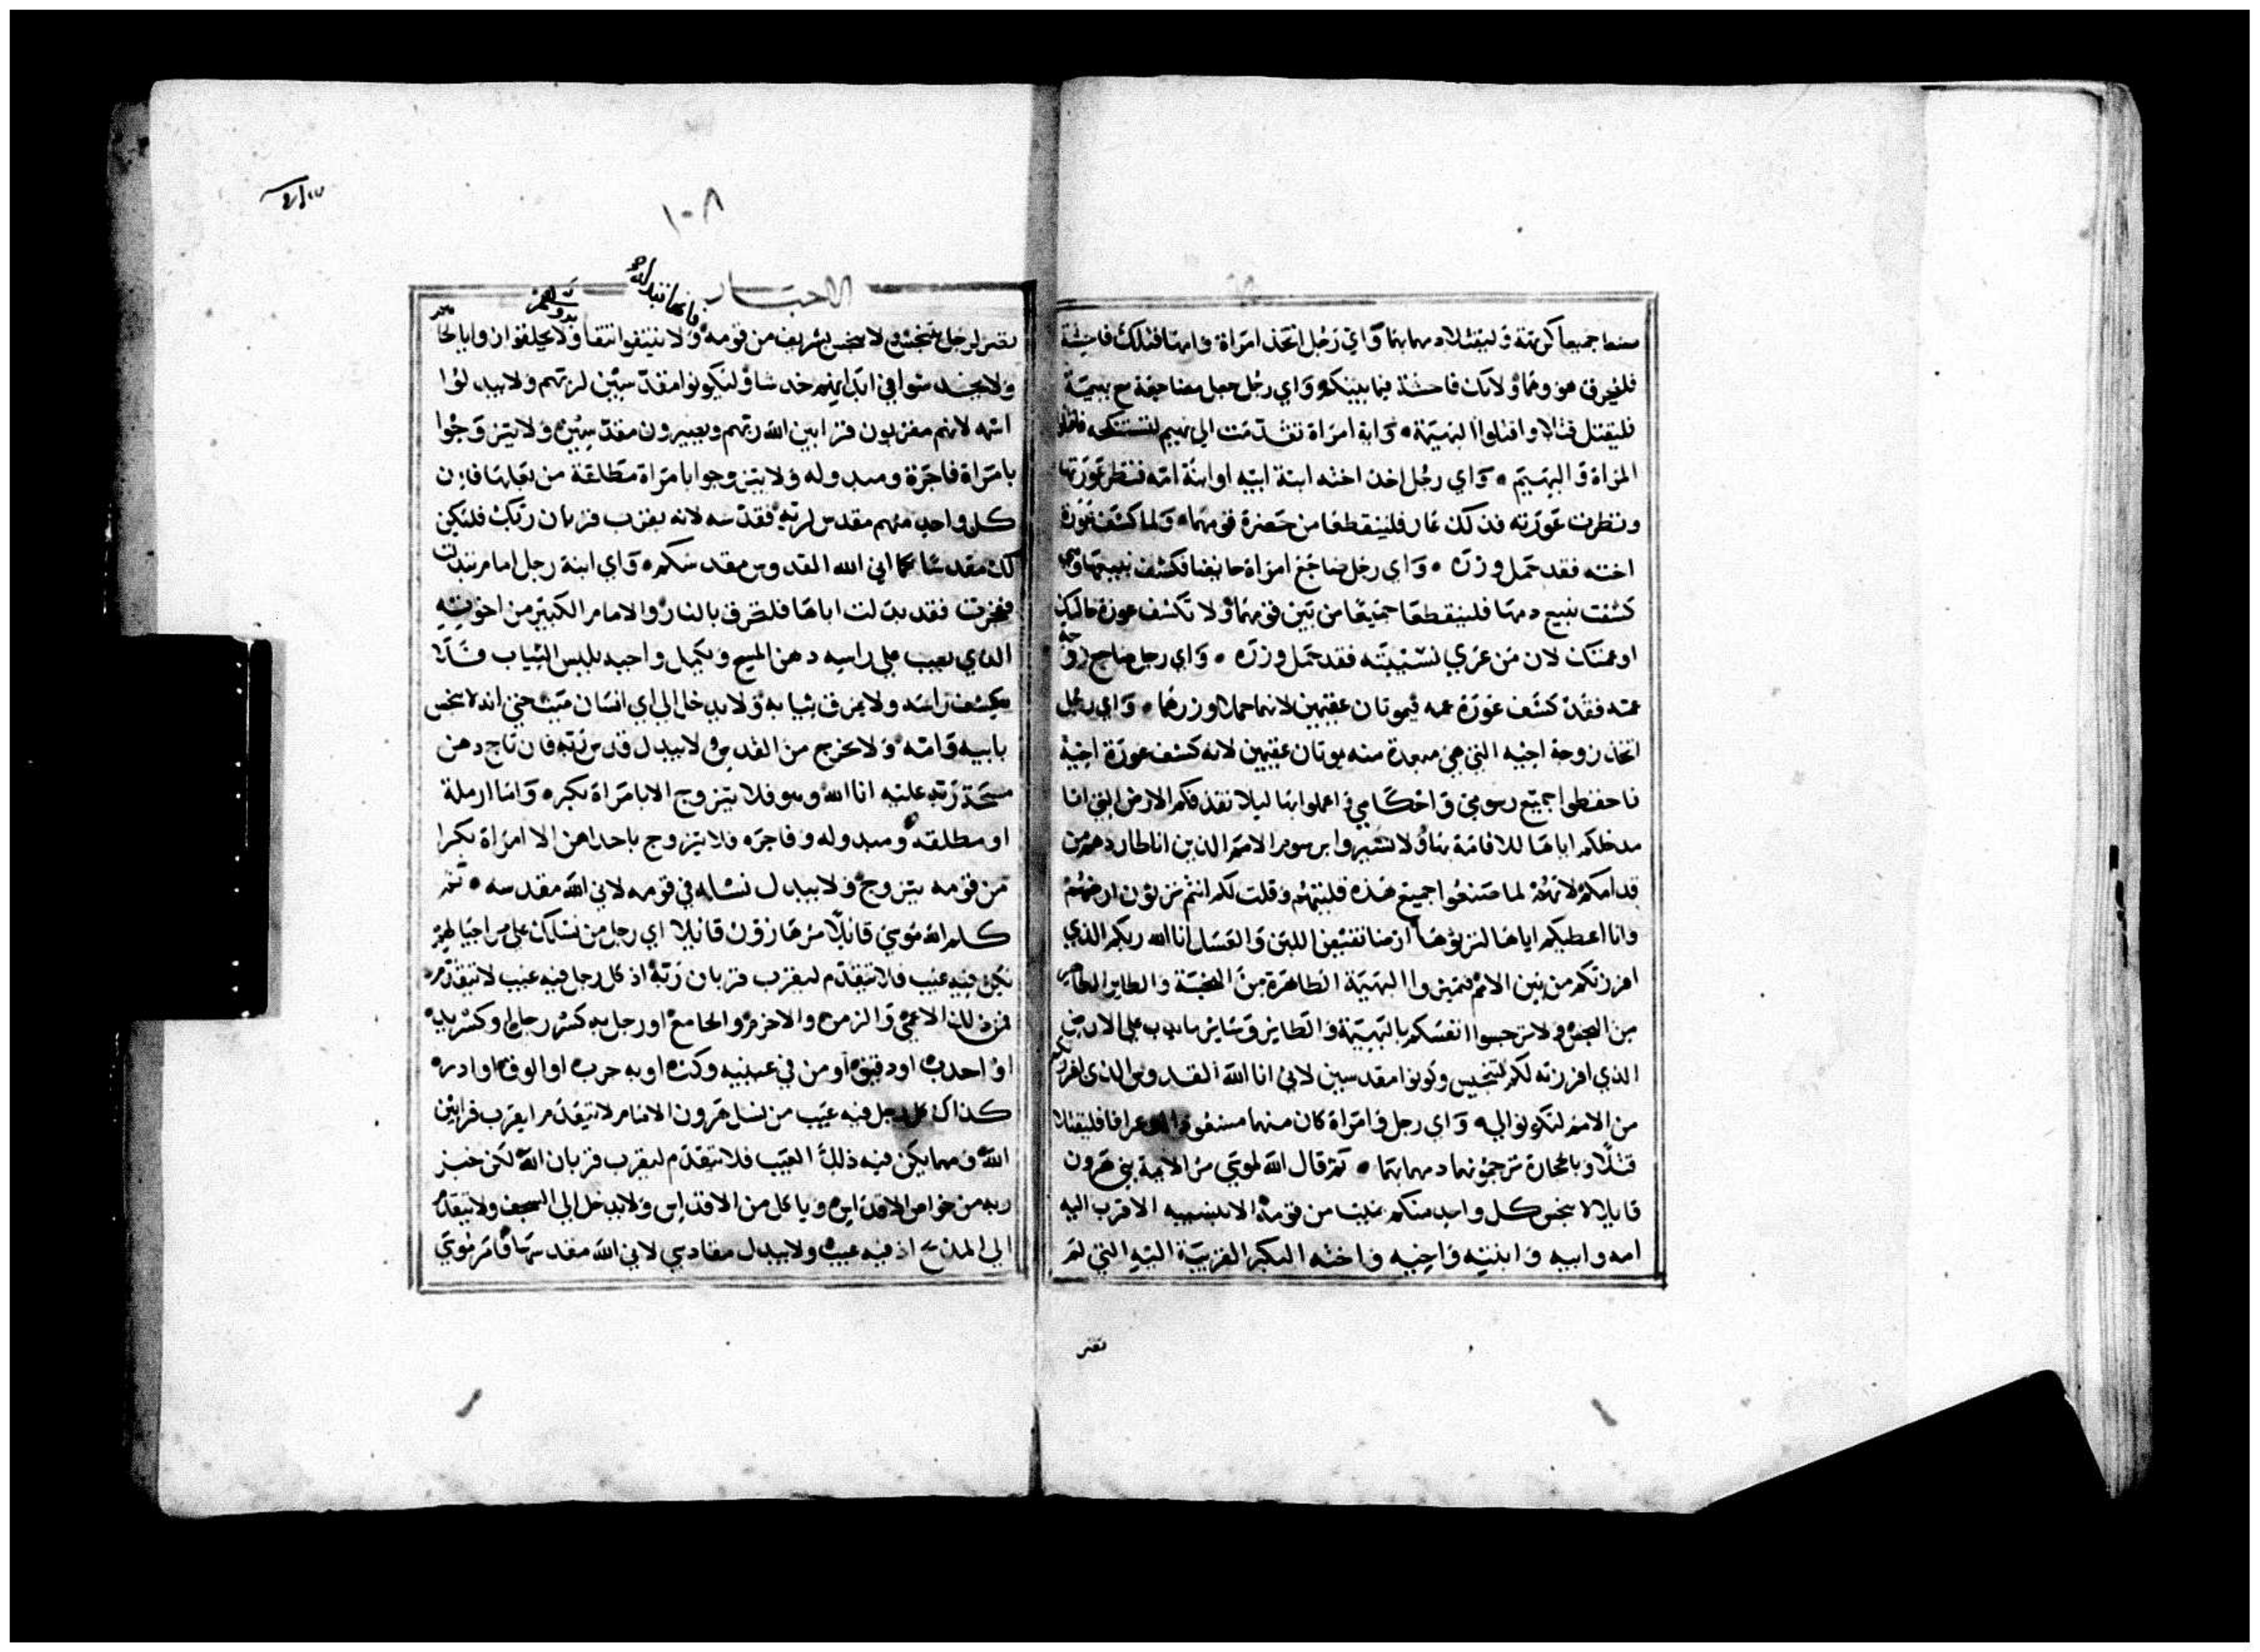 صنعا جميعا كريهة وليقتلا دمهما بهما واي رجل اتخذ امراة وامها فتلك فاحشة
فليحرق هو وهما ولا تكن فاحشة فيما بينكم واي رجل جعل مضاجعة مع بهيمة
فليقتل قتلا واقتلوا البهيمة واية امراة تقدمت الى بهيم لتستنكحه فاقتلوا
المراة والبهيم واي رجل اخذ اخته ابنة ابيه او ابنة امه فنظر عورتها
ونظرت عورته فذلك عار فلينقطعا من حضرة قومهما ولما كشف عورة
اخته فقد حمل وزره واي رجل ضاجع امراة حايضا فكشف ينبيعها وهي
كشفت ينبيع دمها فلينقطعا جميعا من بين قومهما ولا تكشف عورة خالتك
او عمتك لان من عري نسيبته فقد حمل وزره واي رجل ضاجع زوجة
عمه فقد كشف عورة عمه فيموتان عقيمين لانهما حملا وزرهما واي رجل
اتخذ زوجة اخيه التي هي مبعدة منه يموتان عقيمين لانه كشف عورة اخيه
فاحفظوا جميع رسومي واحكامي واعملوا بها ليلا تقذفكم الارض التي انا
مدخلكم اياها للاقامة بها ولا تسيروا برسوم الامم الذين انا طاردهم من
قدامكم لانهم لما صنعوا جميع هذه قليتهم وقلت لكم انتم ترثون ارضهم
وانا اعطيكم اياها لترثوها ارضا تفيض اللبن والعسل انا الله ربكم الذي
افرزتكم من بين الامم فميزوا البهيمة الطاهرة من النجسة والطاير الطاهر
من النجس ولا ترجسوا انفسكم بالبهيمة والطاير وساير ما يدب على الارض
الذي افرزته لكم لتنجيس وكونوا مقدسين لاني انا الله القدوس الذي افرزتكم
من الامم لتكونوا لي واي رجل وامراة كان منهما مشعوذا او عرافا فليقتلا
قتلا وبالحجارة ترجمونهما دمهما بهما ثم قال الله لموسي مر الايمة بني هرون
قايلا لا ينجس كل واحد منكم بميت من قومه الا بنسيبه الاقرب اليه
امه وابيه وابنته واخيه واخته البكر القريبة اليه التي لم
تصر
١٠٨
الاحبار
تصر لرجل فبها يتنجس ولا ينجس بشريف من قومه ولا ينتفوا انتفا ولا يحلقوا زوايا لحاهم
ولا يخدشوا في ابدانهم خدشا وليكونوا مقدسين لربهم ولا يبدلوا
اسمه لانهم مقربون قرابين الله ربهم ويصيرون مقدسين ولا يتزوجوا
بامراة فاجرة ومبدوله ولا يتزوجوا بامراة مطلقة من بعلها فان
كل واحد منهم مقدس لربه فقدسه لانه يقرب قربان ربك فليكن
لك مقدسا كما اني الله القدوس مقدسكم واي ابنة رجل امام تبدلت
ففجرت فقد بدلت اباها فلتحرق بالنار والامام الكبير من اخوته
الذي يصب على راسه دهن المسح ويكمل واجبه بلبس الثياب فلا
يكشف راسه ولا يمزق ثيابه ولا يدخل الى اي انسان ميت حتي انه لا ينجس
بابيه وامه ولا يخرج من القدس ولا يبدل قدس ربه فان تاج دهن
مسحة ربه عليه انا الله وهو فلا يتزوج الا بامراة بكر واما ارملة
او مطلقه ومبدوله وفاجره فلا يتزوج باحداهن الا امراة بكرا
من قومه يتزوج ولا يبدل نسله في قومه لاني الله مقدسه ثم
كلم الله موسي قايلا مر هارون قايلا اي رجل من نسلك على مر اجيالهم
يكن فيه عيب فلا يتقدم ليقرب قربان ربه اذ كل رجل فيه عيب لا يتقدم
فمن ذلك الاعمي والزمن والاخرم والجامع او رجل به كسر رجل او كسر يد
او احدب او دقيق او من في عينيه وكته او به جرب او القوه او ادره
كذاك كل رجل فيه عيب من نسل هرون الامام لا يتقدم ليقرب قرابين
الله ومهما يكن فيه ذلك العيب فلا يتقدم ليقرب قربان الله لكن خبز
ربه من خواص الاقداس وياكل من الاقداس ولا يدخل الى السجف ولا يتقدم
الى المذبح اذ فيه عيب ولا يبدل مقادسي لاني الله مقدسها فامر موسي